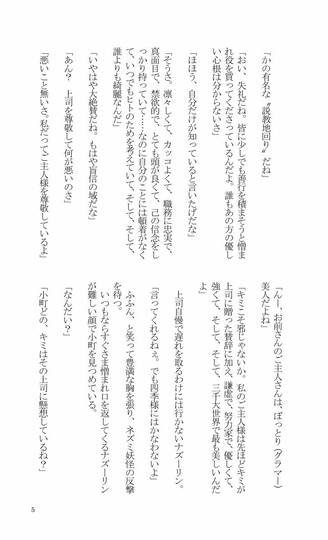 「かの有名な〝説教地回り〟だね」
「おい、失礼だね。皆に少しでも善行を積まそうと憎ま
れ役を買ってくださっているんだよ。誰もあの方の優し
い心根は分からないさ」
「ほほう、自分だけが知っていると言いたげだな」
「そうさ。凛々しくて、カッコよくて、職務に忠実で、
真面目で、禁欲的で、とても頭が良くて、己の信念をし
っかり持っていて……なのに自分のことには頓着がなく
て、いつでもヒトのためを考えていて、そして、そして、
誰よりも綺麗なんだ」
「いやはや大絶賛だね。もはや盲信の域だな」
「あん？　上司を尊敬して何が悪いのさ」
「悪いこと無いさ。私だってご主人様を尊敬しているよ」
「んー、お前さんのご主人さんは、ぼっとり（グラマー）
美人だよね」
「キミこそ邪じゃないか。私のご主人様は先ほどキミが
上司に贈った賛辞に加え、謙虚で、努力家で、優しくて、
強くて、そして、そして、三千大世界で最も美しいんだ
よ」
　上司自慢で遅れを取るわけには行かないナズーリン。
「言ってくれるねぇ。でも四季様にはかなわないよ」
　ふふん、と笑って豊満な胸を張り、ネズミ妖怪の反撃
を待つ。
　いつもならすぐさま憎まれ口を返してくるナズーリン
が難しい顔で小町を見つめている。
「なんだい？」
「小町どの、キミはその上司に懸想しているね？」
5